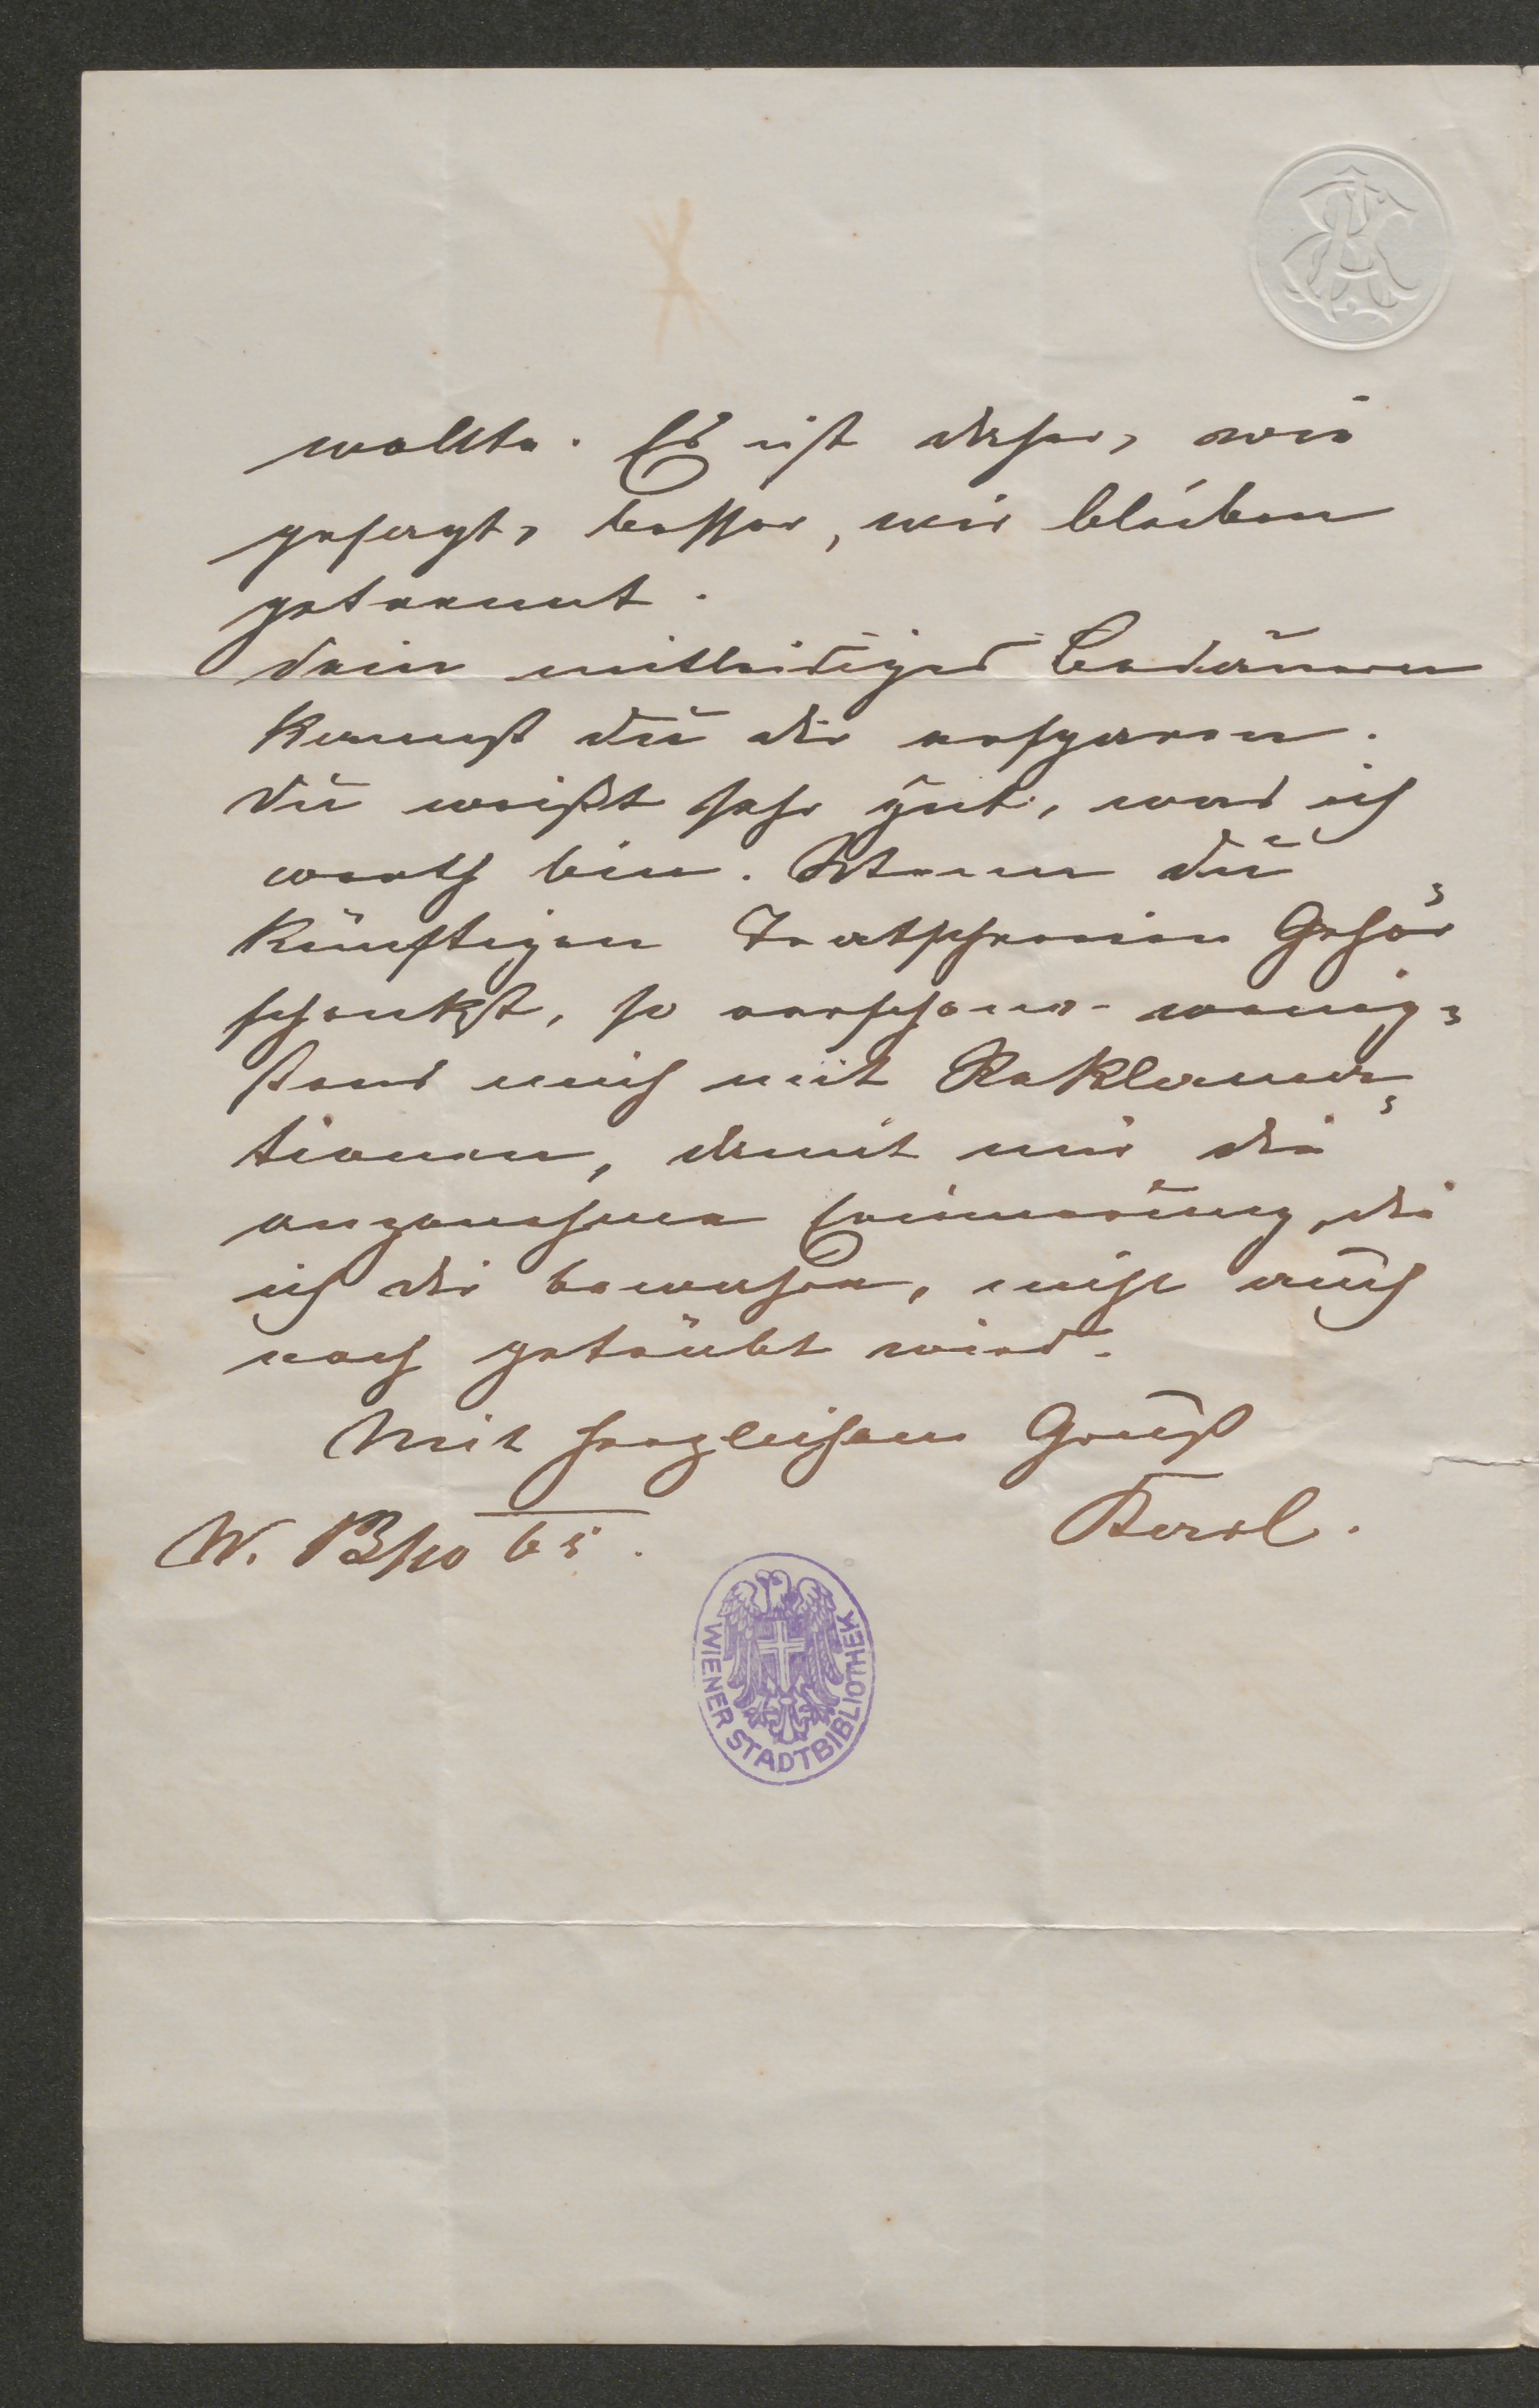 wollte. Es ist daher, wie
gesagt, besser, wir bleiben
getrennt.
Dein mitleidiges Bedauern
kannst Du dir ersparen.
Du weißt sehr gut, was ich
werth bin. Wenn Du
künftigen Tratschereien Gehör
schenkst, so verschone wenig=
stens mich mit Reklama=
tionen, damit mir die
angenehme Erinnerung, die
ich dir bewahre, nicht auch
noch getrübt wird.
Mit herzlichem Gruß
Karl.
W. 13/10 65.
WIENER STADTBIBLIOTHEK